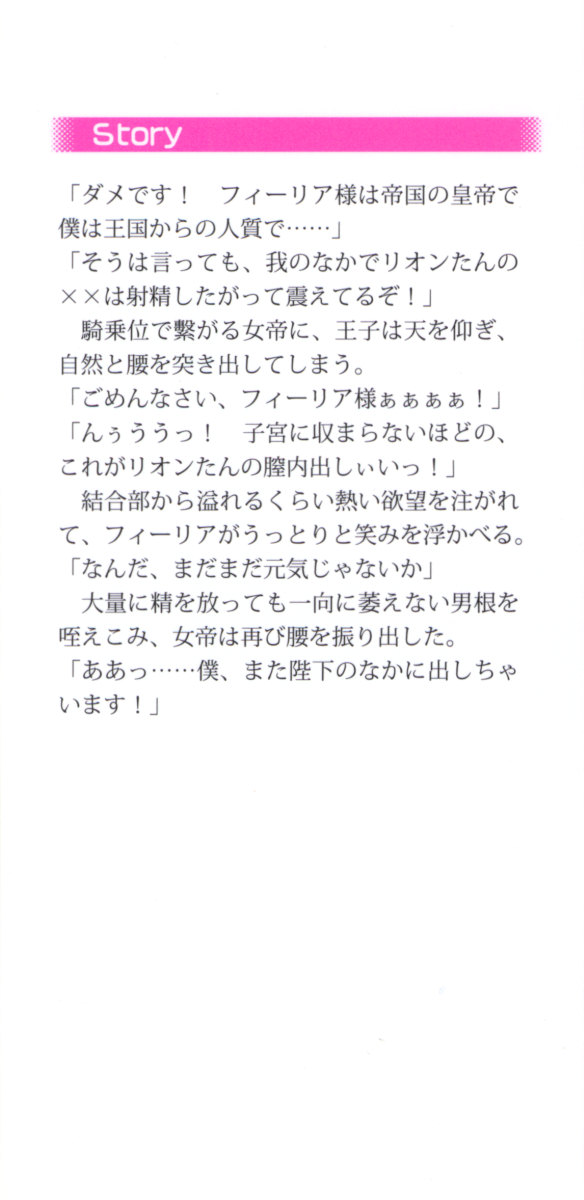 Story
「ダメです！　フィーリア様は帝国の皇帝で
僕は王国からの人質で……」
「そうは言っても、我のなかでリオンたんの
××は射精したがって震えてるぞ！」
　騎乗位で繋がる女帝に、王子は天を仰ぎ、
自然と腰を突き出してしまう。
「ごめんなさい、フィーリア様ぁぁぁぁ！」
「んぅううっ！　子宮に収まらないほどの、
これがリオンたんの膣内出しぃいいっ！」
　結合部から溢れるくらい熱い欲望を注がれ
て、フィーリアがうっとりと笑みを浮かべる。
「なんだ、まだまだ元気じゃないか」
　大量に精を放っても一向に萎えない男根を
咥えこみ、女帝は再び腰を振り出した。
「ああっ……僕、また陛下のなかに出しちゃ
います！」